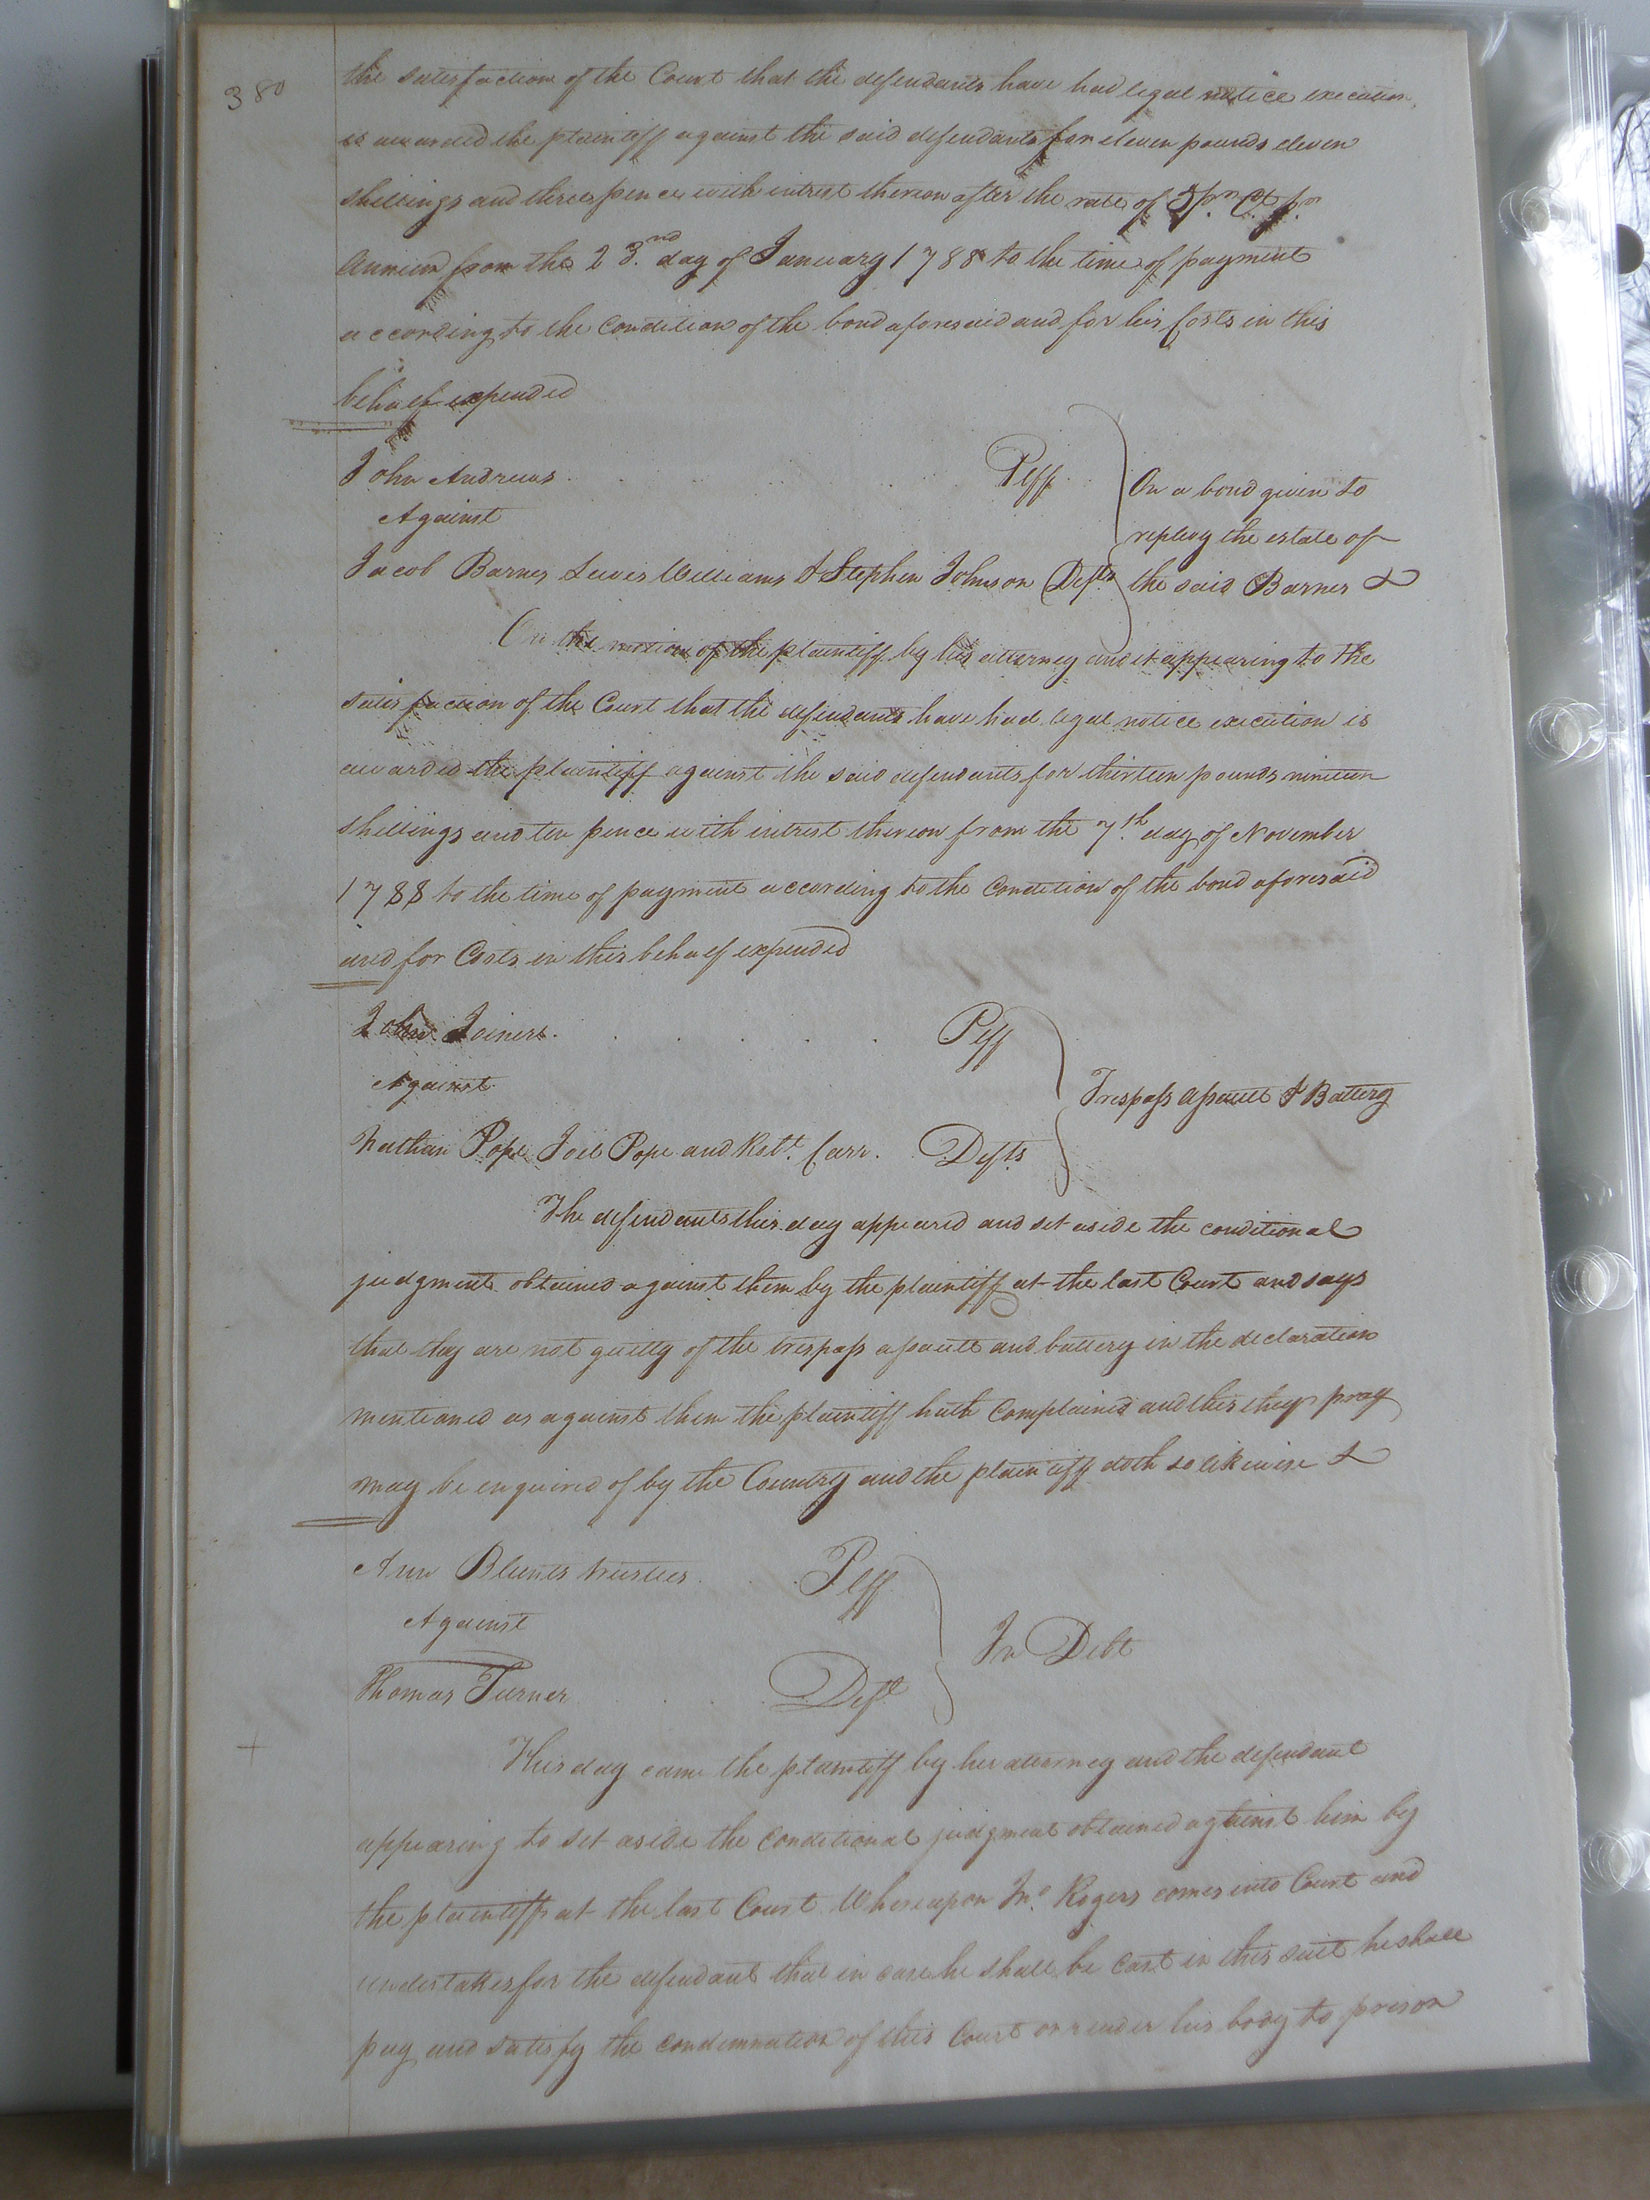 380
the satisfaction of the Court that the defendants have had legal notice execution
is awarded the plaintiff against the said defendants for eleven pounds eleven
shillings and three pence with intrest thereon after the rate of 5 pr Ct pr
Annum from the 23.nd day of January 1788 to the time of payment
according to the Condition of the bond aforesaid and for his Costs in this
behalf expended
John Andrews . . . . Plff. On a bond given to
Against replevy the estate of
Jacob Barnes Lewis Williams & Stephen Johnson Defts the said Barnes &
On the motion of the plaintiff by his attorney and it appearing to the
satisfaction of the Court that the defendants have had legal notice execution is
awarded the plaintiff against the said defendants for thirteen pounds nineteen
shillings and ten pence with intrest thereon from the 7th day of November
1788 to the time of payment according to the Condition of the bond aforesaid
and for Costs in this behalf expended
John Joiner . . . . . Plff
Against Trespass Assault & Battery
Nathan Pope Joel Pope and Robt. Carr. Defts
The defendants this day appeared and set aside the conditional
judgment obtained against them by the plaintiff at the last Court and says
that they are not guilty of the trespass assault and battery in the declaration
mentioned as against them the plaintiff hath Complained and this they pray
may be enquired of by the Country and the plaintiff doth so likewise &
Ann Blunts trustees . . Plff
Against In Debt
Thomas Turner . . . Deft
This day came the plaintiff by her attorney and the defendant
appearing to set aside the conditional judgment obtained against him by
the plaintiff at the last Court Whereupon Jno. Rogers comes into Court and
undertakes for the defendant that in case he shall be cast in this suit he shall
pay and satisfy the condemnation of this Court or render his body to prison